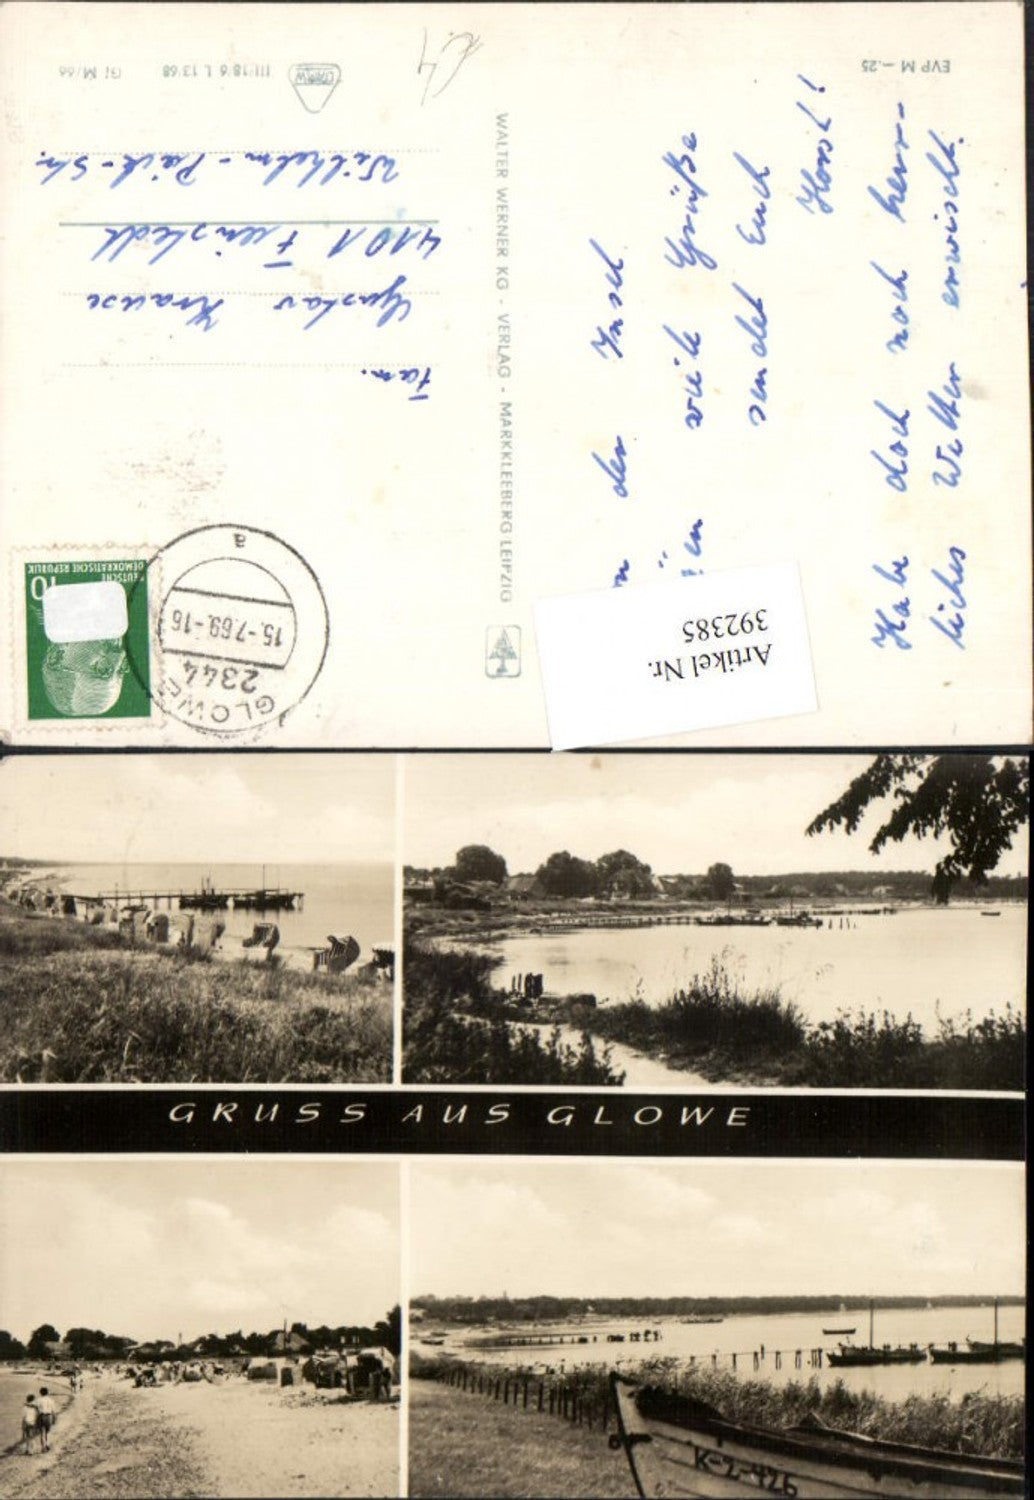 Von der Insel
viele Grüße
sendet Euch
Horst!
Habe doch noch herr-
liches Wetter erwischt.
WALTER WERNER KG - VERLAG - MARKKLEEBERG LEIPZIG
EVP M -.25
III/18/6 L 13/68 Gl M/66
DEUTSCHE
DEMOKRATISCHE REPUBLIK
10
GLOWE
2344
15.-7.69.-16
a
Fam.
Gustav Krause
4101
Wilhelm-Pieck-Str.
Artikel Nr.
392385
GRUSS AUS GLOWE
K-2-426